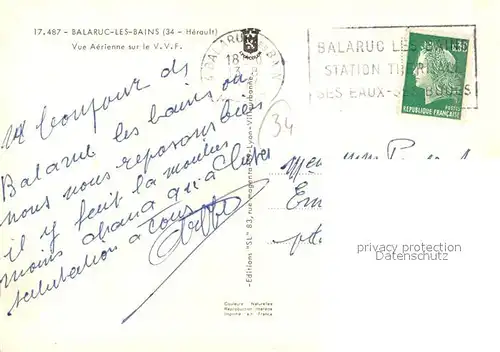 17.487 - BALARUC-LES-BAINS (34 - Hérault)
Vue Aérienne sur le V.V.F.
BALARUC LES BAINS
STATION THERMALE
SES EAUX-SES BOUES
0,30
POSTES
REPUBLIQUE FRANÇAISE
18
34
Bonjour de
Balaruc les bains ou
nous nous reposons bien
il y fait la moitié
moins chaud qu'a
salutation à tous
-Editions "SL" 83, rue magenta-Lyon-Villeurbanne
privacy protection
Datenschutz
Couleurs Naturelles
Reproduction Interdite
Imprimé en France